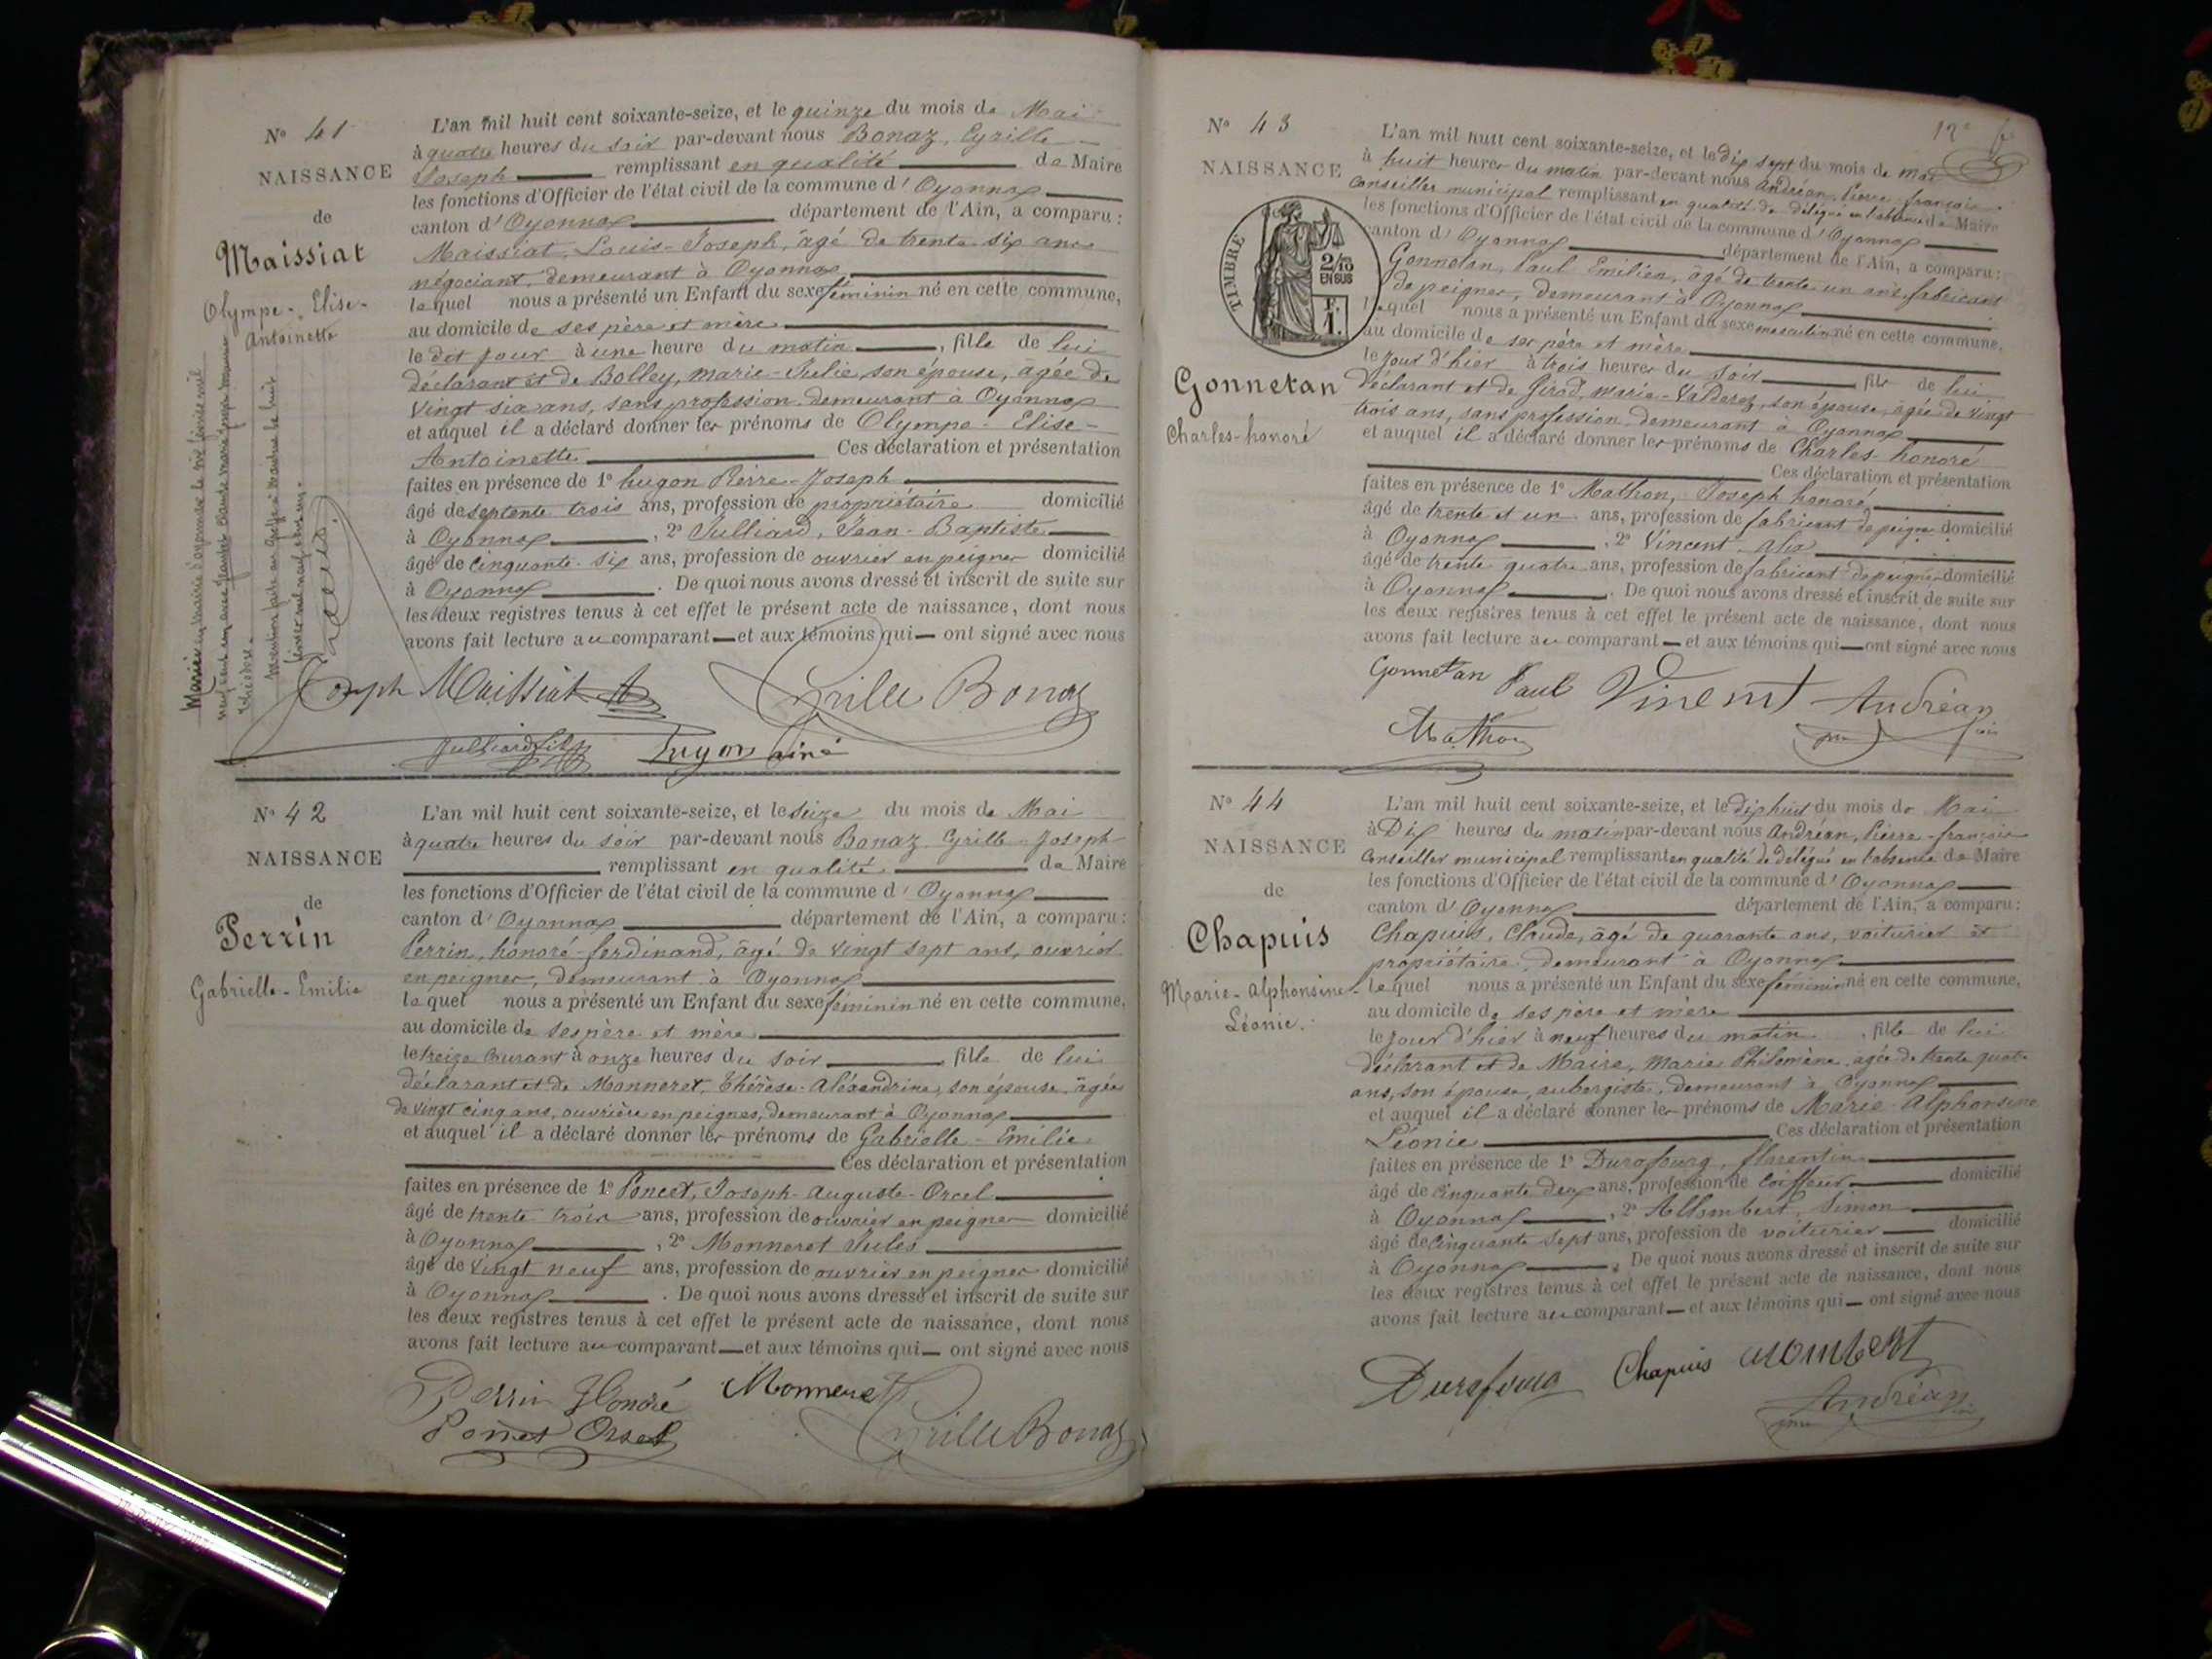 N° 41
NAISSANCE
de
Maissiat
Olympe-Elise-
Antoinette
L'an mil huit cent soixante-seize, et le quinze du mois de Mai
à quatre heures du soir par-devant nous Bonaz, Cyrille
Joseph remplissant en qualité de Maire
les fonctions d'Officier de l'état civil de la commune d'Oyonnax
canton d'Oyonnax département de l'Ain, a comparu :
Maissiat, Louis-Joseph, âgé de trente six ans
négociant, demeurant à Oyonnax
lequel nous a présenté un Enfant du sexe féminin né en cette commune,
au domicile de ses père et mère
le dit jour à une heure du matin, fille de lui
déclarant et de Bolley, Marie-Julie, son épouse, âgée de
vingt six ans, sans profession, demeurant à Oyonnax
et auquel il a déclaré donner les prénoms de Olympe-Elise-
Antoinette Ces déclaration et présentation
faites en présence de 1° hugon Pierre-Joseph
âgé de septente trois ans, profession de propriétaire domicilié
à Oyonnax, 2° Julliard, Jean-Baptiste
âgé de cinquante-six ans, profession de ouvrier en peignes domicilié
à Oyonnax. De quoi nous avons dressé et inscrit de suite sur
les deux registres tenus à cet effet le présent acte de naissance, dont nous
avons fait lecture au comparant et aux témoins qui ont signé avec nous
Joseph Maissiat Cyrille Bonaz
Julliard fils hugon ainé
N° 42
NAISSANCE
de
Perrin
Gabrielle-Emilie
L'an mil huit cent soixante-seize, et le seize du mois de Mai
à quatre heures du soir par-devant nous Bonaz, Cyrille-Joseph
remplissant en qualité de Maire
les fonctions d'Officier de l'état civil de la commune d'Oyonnax
canton d'Oyonnax département de l'Ain, a comparu :
Perrin, honoré-ferdinand, âgé de vingt sept ans, ouvrier
en peignes, demeurant à Oyonnax
lequel nous a présenté un Enfant du sexe féminin né en cette commune,
au domicile de ses père et mère
le treize Courant à onze heures du soir fille de lui
déclarant et de Monneret, Thérèse-Aléxandrine, son épouse, âgée
de vingt cinq ans, ouvrière en peignes, demeurant à Oyonnax
et auquel il a déclaré donner les prénoms de Gabrielle-Emilie
Ces déclaration et présentation
faites en présence de 1° Poncet, Joseph-Auguste-Orcel
âgé de trente trois ans, profession de ouvrier en peignes domicilié
à Oyonnax, 2° Monneret Jules
âgé de vingt neuf ans, profession de ouvrier en peignes domicilié
à Oyonnax. De quoi nous avons dressé et inscrit de suite sur
les deux registres tenus à cet effet le présent acte de naissance, dont nous
avons fait lecture au comparant et aux témoins qui ont signé avec nous
Perrin Honoré Monneret
Poncet Orcel Cyrille Bonaz
12e
N° 43
NAISSANCE
TIMBRE
2/10
EN SUS
F.
1.
Gonnetan
Charles-honoré
L'an mil huit cent soixante-seize, et le dix sept du mois de mai
à huit heures du matin par-devant nous Andréan, Pierre-françois
Conseiller municipal remplissant en qualité de délégué en l'absence de Maire
les fonctions d'Officier de l'état civil de la commune d'Oyonnax
canton d'Oyonnax département de l'Ain, a comparu :
Gonnetan, Paul Emilien, âgé de trente un ans, fabricant
de peignes, demeurant à Oyonnax
lequel nous a présenté un Enfant du sexe masculin né en cette commune,
au domicile de ses père et mère
le jour d'hier à trois heures du soir fils de lui
déclarant et de Girod, Marie-Valderez, son épouse, âgée de vingt
trois ans, sans profession, demeurant à Oyonnax
et auquel il a déclaré donner les prénoms de Charles-honoré
Ces déclaration et présentation
faites en présence de 1° Mathon, Joseph honoré
âgé de trente et un ans, profession de fabricant de peigne domicilié
à Oyonnax, 2° Vincent, Alix
âgé de trente quatre ans, profession de fabricant de peignes domicilié
à Oyonnax. De quoi nous avons dressé et inscrit de suite sur
les deux registres tenus à cet effet le présent acte de naissance, dont nous
avons fait lecture au comparant et aux témoins qui ont signé avec nous
Gonnetan Paul Vincent Andréan
Mathon
N° 44
NAISSANCE
de
Chapuis
Marie-Alphonsine-
Léonie.
L'an mil huit cent soixante-seize, et le dix huit du mois de Mai
à Dix heures du matin par-devant nous Andréan, Pierre-françois
Conseiller municipal remplissant en qualité de délégué en l'absence de Maire
les fonctions d'Officier de l'état civil de la commune d'Oyonnax
canton d'Oyonnax département de l'Ain, a comparu :
Chapuis, Claude, âgé de quarante ans, voiturier et
propriétaire, demeurant à Oyonnax
lequel nous a présenté un Enfant du sexe féminin né en cette commune,
au domicile de ses père et mère
le jour d'hier à neuf heures du matin, fille de lui
déclarant et de Maire, Marie Philomène, agée de trente quatre
ans, son épouse, aubergiste, demeurant à Oyonnax
et auquel il a déclaré donner les prénoms de Marie-Alphonsine
Léonie Ces déclaration et présentation
faites en présence de 1° Durafourg, florentin
âgé de cinquante deux ans, profession de coiffeur domicilié
à Oyonnax, 2° Allombert, Simon
âgé de cinquante sept ans, profession de voiturier domicilié
à Oyonnax. De quoi nous avons dressé et inscrit de suite sur
les deux registres tenus à cet effet le présent acte de naissance, dont nous
avons fait lecture au comparant et aux témoins qui ont signé avec nous
Durafourg Chapuis alombert
Andréan